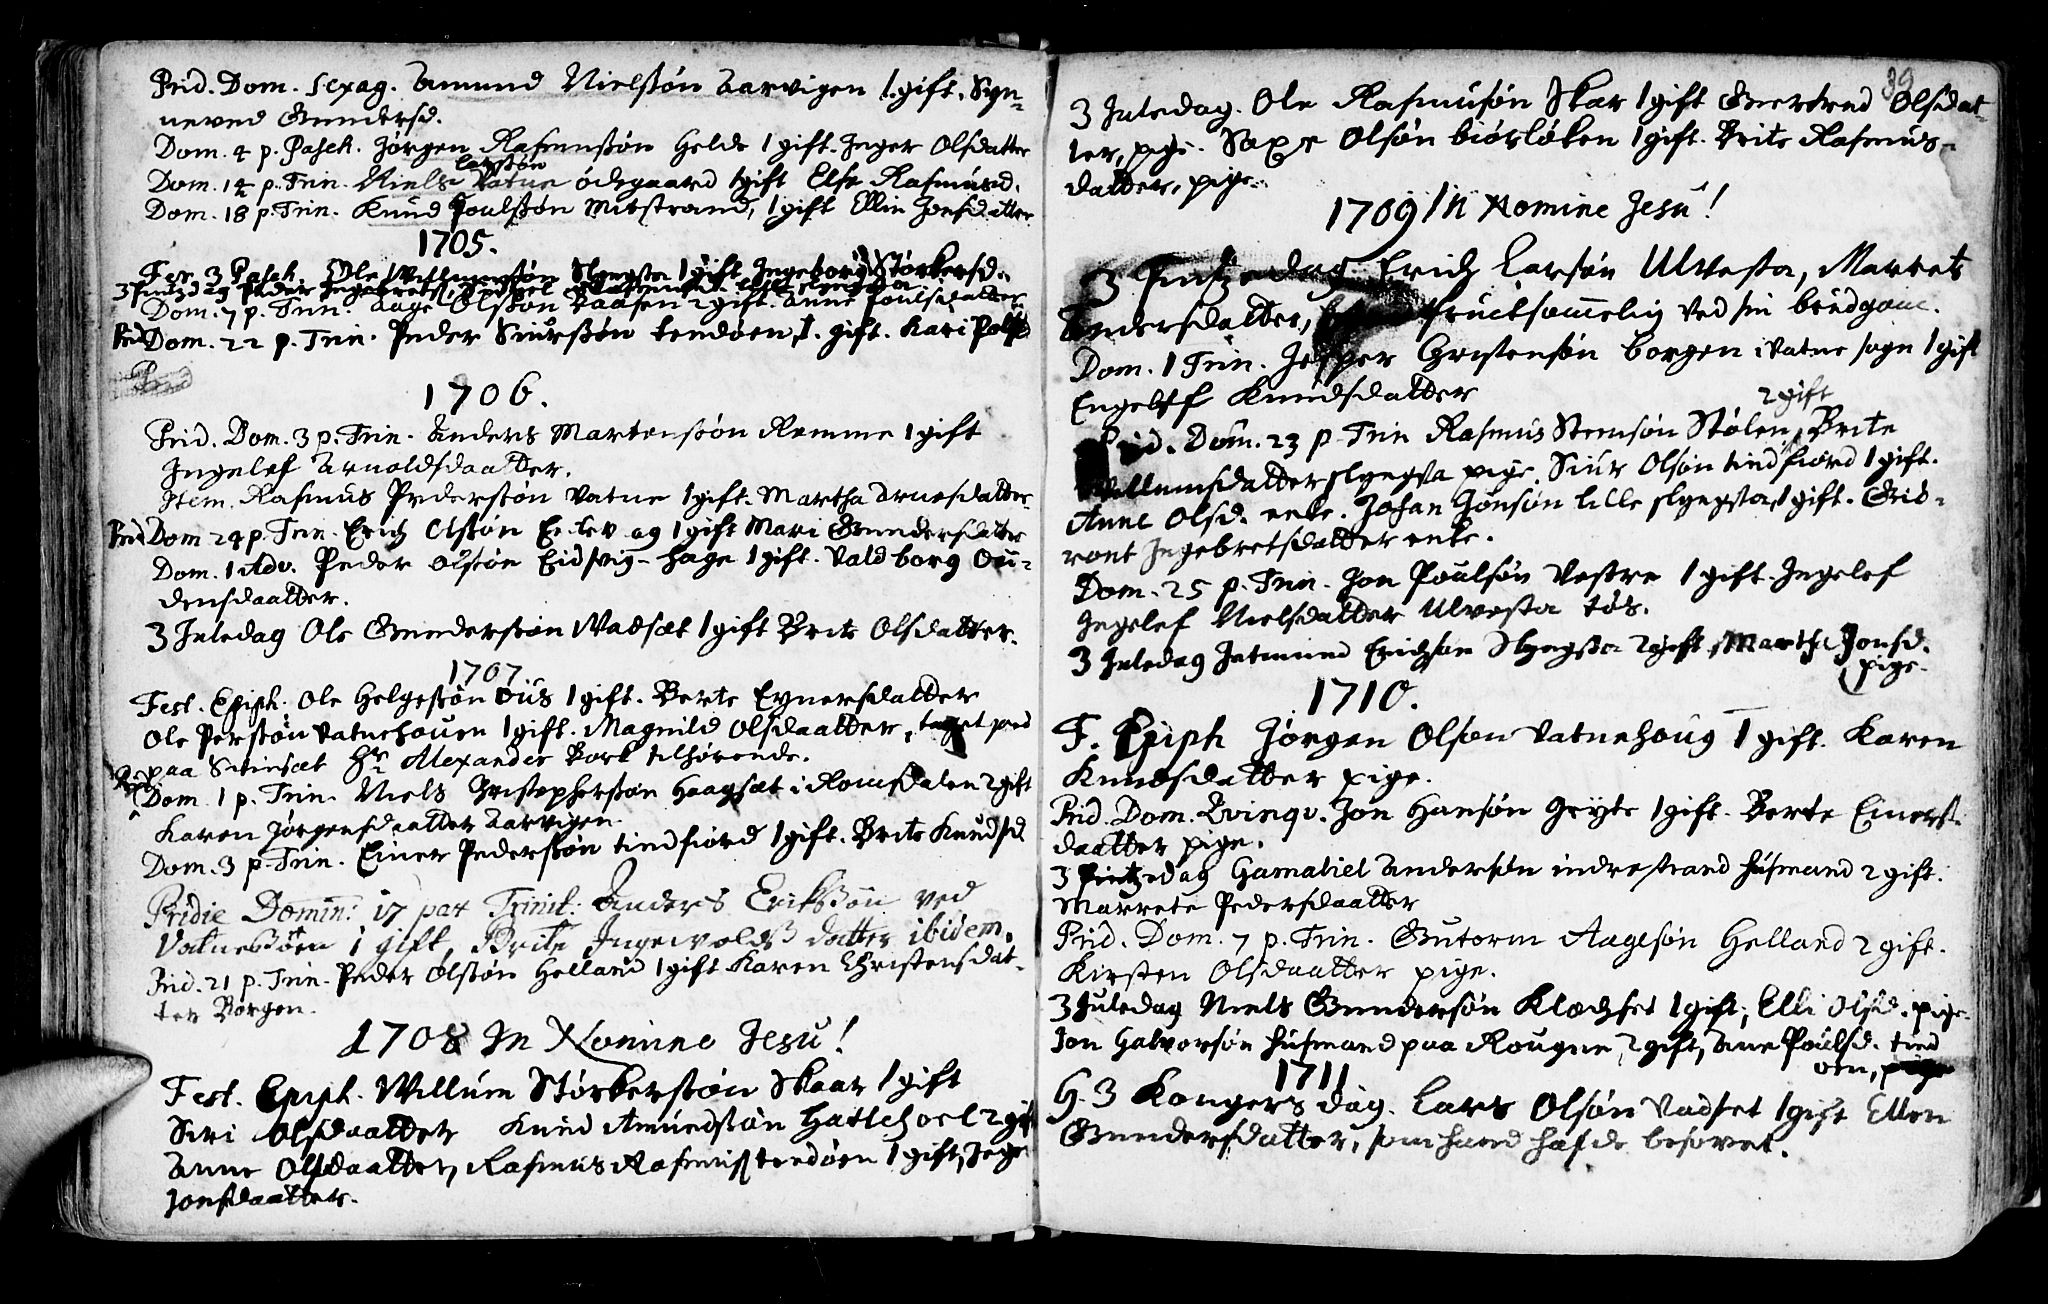 Prid. Dom. Sexag. Amund Nielssøn Aarvigen 1 gift. Sig-
neved Gundersd.
Dom. 4 p. Pasch. Jørgen Rasmussøn Helde 1 gift. Inger Olsdatter
larssøn
Dom. 14 p. Trin. Niels Vatne ødegaard 1 gift Else Rasmusd.
Dom. 18 p. Trin. Knud Poulssøn Mitstrand, 1 gift Ellin Jonsdatter
1705.
Fer. 3 Pasch. Ole Willumssøn Slyngsta 1 gift Ingeborg Størkersd.
3 Pintzdag Peder
Dom. 7 p. Trin. Aage Olssøn Vaasen 2 gift. Anne Poulsdatter
Prid Dom. 22 p. Trin. Peder Siurssøn tendøen, 1. gift. Kari Pols
Prid
1706.
Prid. Dom. 3 p. Trin. Anders Martenssøn Remme 1 gift
Ingelef Arnoldsdaatter.
Item. Rasmus Pederssøn Vatne 1 gift. Martha Arnesdatter
Prid Dom 24 p. Trin. Erich Olssøn 1 gift Mari Gundersdatter
Dom. 1 Adv. Peder Olssøn Eidsvig-hage 1 gift. Valdborg Ou-
densdaatter.
3 Juledag Ole Gunderssøn Vadsæt 1 gift Brite Olsdatter.
1707.
Fest. Epiph. Ole Helgessøn Vus 1 gift. Berte Eynersdatter
Ole Perssøn Vatnehouen 1 gift. Magnild Olsdaatter,
paa Svinsæt Hr. Alexander Bork tilhørende.
Dom. 1 p. Trin. Niels Christopherssøn Haagsæt i Romsdalen 2 gift
Karen Jørgensdaatter Aarvigen.
Dom. 3 p. Trin. Einer Pederssøn tindfiord 1 gift. Brite Knudsd
Pridie Domin: 17 par Trinit: Anders Erikssøn ved
Vatnestøen 1 gift, Brite Ingevolds datter ibidem.
Prid. 21 p. Trin. Peder Olssøn Helland 1 gift Karen Christensdat-
ter Borgen.
1708 In Nomine Jesu!
Fest. Epiph. Willum Størkerssøn Skaar 1 gift
Siri Olsdaatter Knud Amundssøn Hattehoel 2 gif
Anne Olsdaatter, Rasmus Rasmuss tendøen 1 gift, Inge
Jonsdaatter.
39
3 Juledag. Ole Rasmusøn Skar 1 gift Giertrud Olsdat-
ter, pige. Saxe Olsøn biørløken 1 gift. Brite Rasmus-
datter, pige.
1709 In Nomine Jesu!
3 Pintzedag Erich Larsøn Ulvesta, Marrete
Andersdatter, fructsommelig ved sin brudgom.
Dom. 1 Trin. Jesper Christensøn borgen i Vatne sogn 1 gift
Engeleff Knudsdatter
2 gift
Prid. Dom. 23 p. Trin Rasmus Steensøn Stølen, Brite
Willumsdatter slyngsta pige. Siur Olsøn tindfiord 1 gift.
Anne Olsd. enke. Johan Jonsøn lille slyngsta 1 gift. Gid-
ront Ingebretsdatter enke.
Dom. 25 p. Trin. Jon Poulsøn Vestre 1 gift. Ingelef
Ingelef Nielsdatter Ulvesta tøs.
3 Juledag Jetmund Erichsøn Slyngsta 2 gift Martha Jonsd.
pige.
1710.
F. Epiph Jørgen Olson Vatnehoug 1 gift. Karen
Knudsdatter pige.
Prid. Dom. Qvinqv. Jon Hansøn Gryte 1 gift. Berte Einers-
daatter pige.
3 Pintzedag Gamaliel Andersøn indrestrand husmand 2 gift.
Marrete Pedersdaatter
Prid. Dom. 7 p. Trin. Gutorm Aagesøn Helland 2 gift.
Kirsten Olsdaatter pige.
3 Juledag Niels Gundersøn Klochset 1 gift, Elli Olsd. pige.
Jon Halvorsøn husmand paa Rougne, 2 gift, Ane Poulsd. tind
øen, pige
1711
H. 3 Kongers dag. Lars Olsøn Vadset 1 gift Ellen
Gundersdatter, som hand hafde besovet.